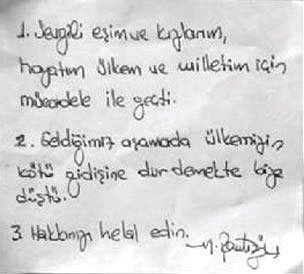 1. Sevgili eşim ve kızlarım,
hayatım ülkem ve milletim için
mücadele ile geçti.
2. Geldiğimiz aşamada ülkemizin
kötü gidişine dur demekte bize
düştü.
3. Hakkınızı helal edin.